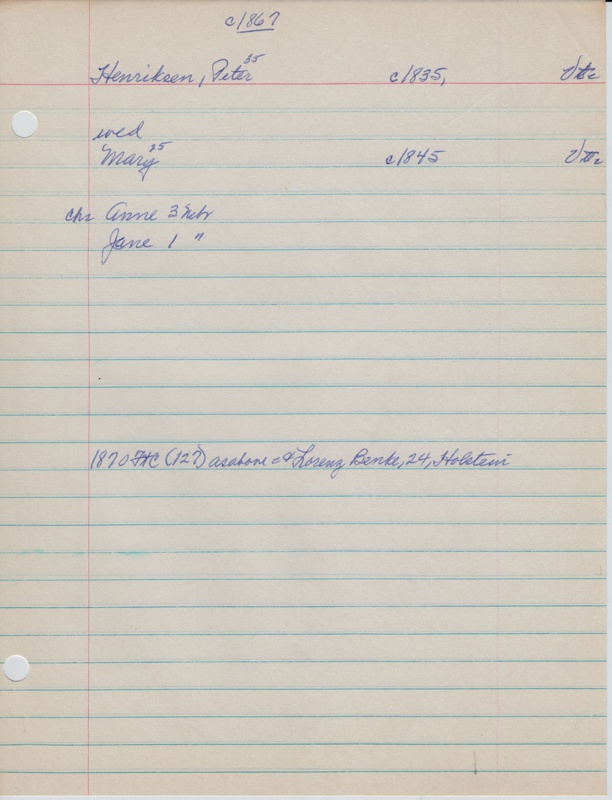 c/1867
Henriksen, Peter 35 c/1835,
wed
Mary 25 c/1845
chr Anne 3 Nebr
Jane 1 "
1870 FHC (127) asabove = & Lorenz Benke, 24, Holstein